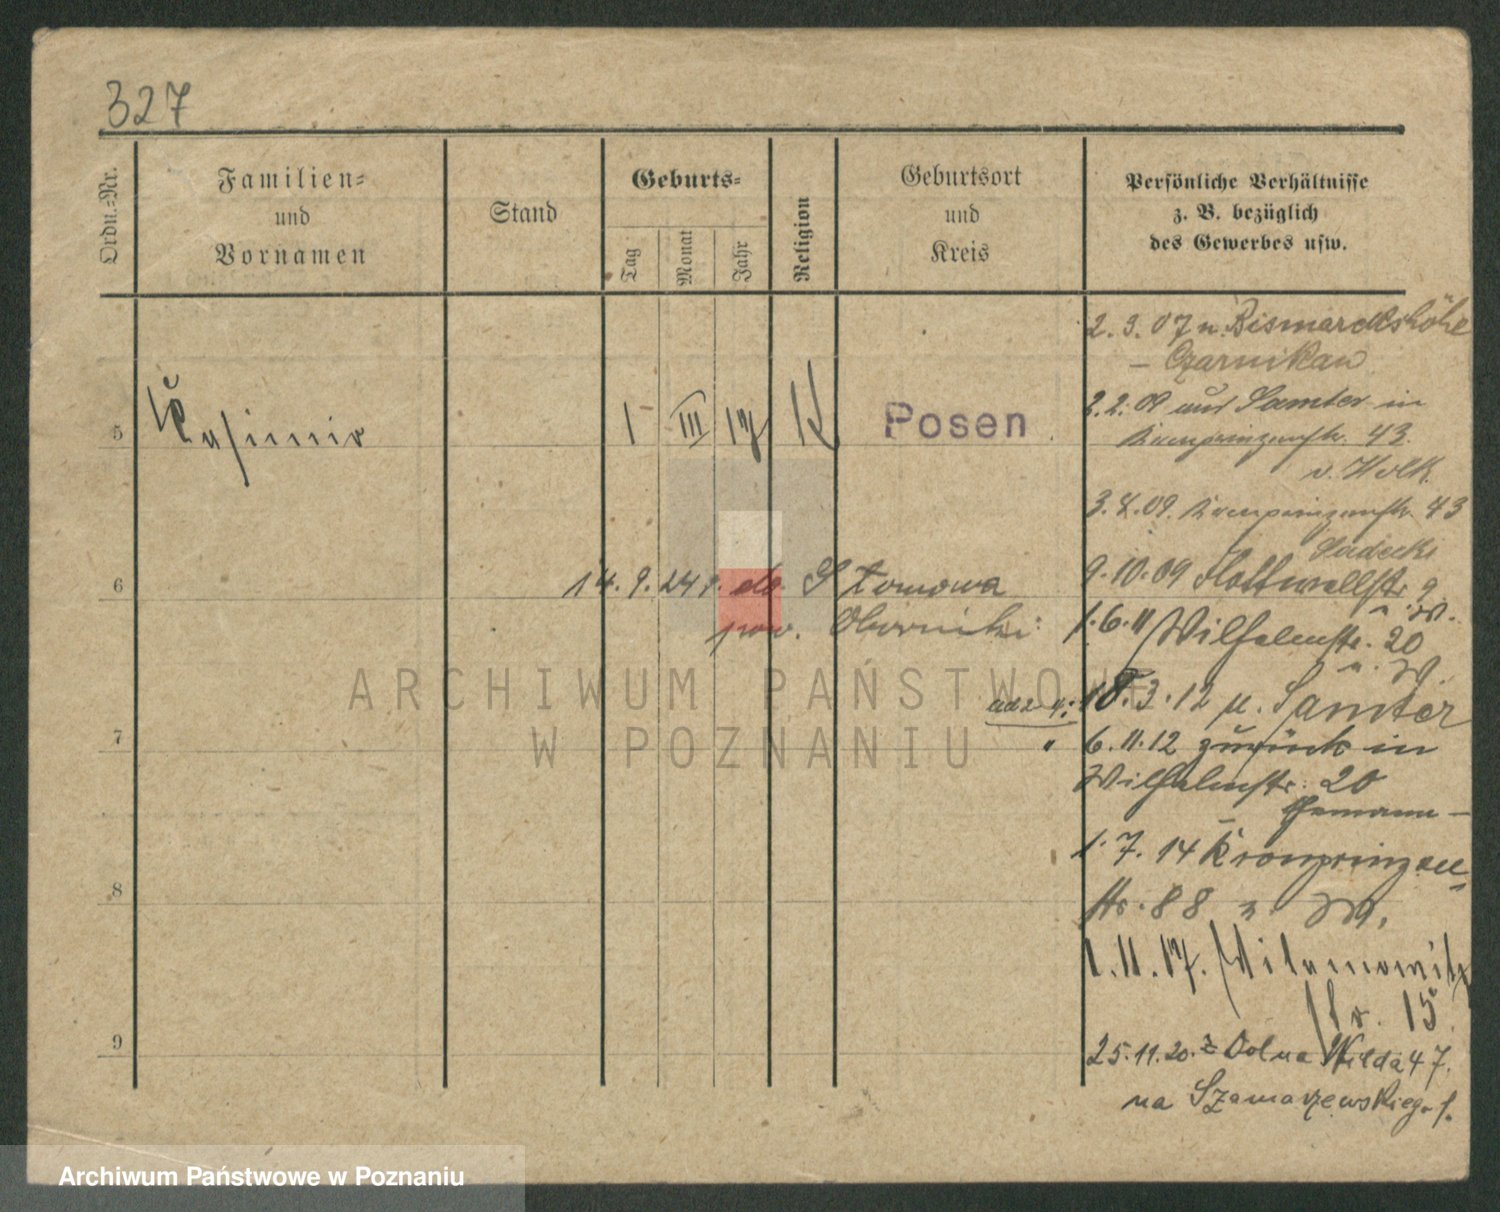 327
Ordn.-Nr.
Familien-
und
Vornamen
Stand
Geburts-
Tag
Monat
Jahr
Religion
Geburtsort
und
Kreis
Persönliche Verhältnisse
z. B. bezüglich
des Gewerbes usw.
2. 3. 07 n. Bismarckshöhe
– Czarnikau
2. 2. 09 aus Samter in
Kronprinzenstr. 43.
v. Wolk.
5 Kasimir 1 III 17 K Posen
3. 4. 09. Kronprinzenstr. 43
6 14. 9. 24 r. do Stomowa
pow. Oborniki
9. 10. 09 Hottwellstr. 9
n. W.
1. 6. 11 Wilhelmstr. 20
n. W.
ad 2-4: 18. 3. 12 n. Samter
7 " 6. 11. 12 zurück in
Wilhelmstr. 20
1. 7. 14 Kronprinzen-
8 str. 88 n W.
1. 11. 17. Wilamowitz
str. 15.
9 25. 11. 20. z Dolna Wilda 47.
na Szamarzewskieg. 1.
ARCHIWUM PAŃSTWOWE
W POZNANIU
Archiwum Państwowe w Poznaniu